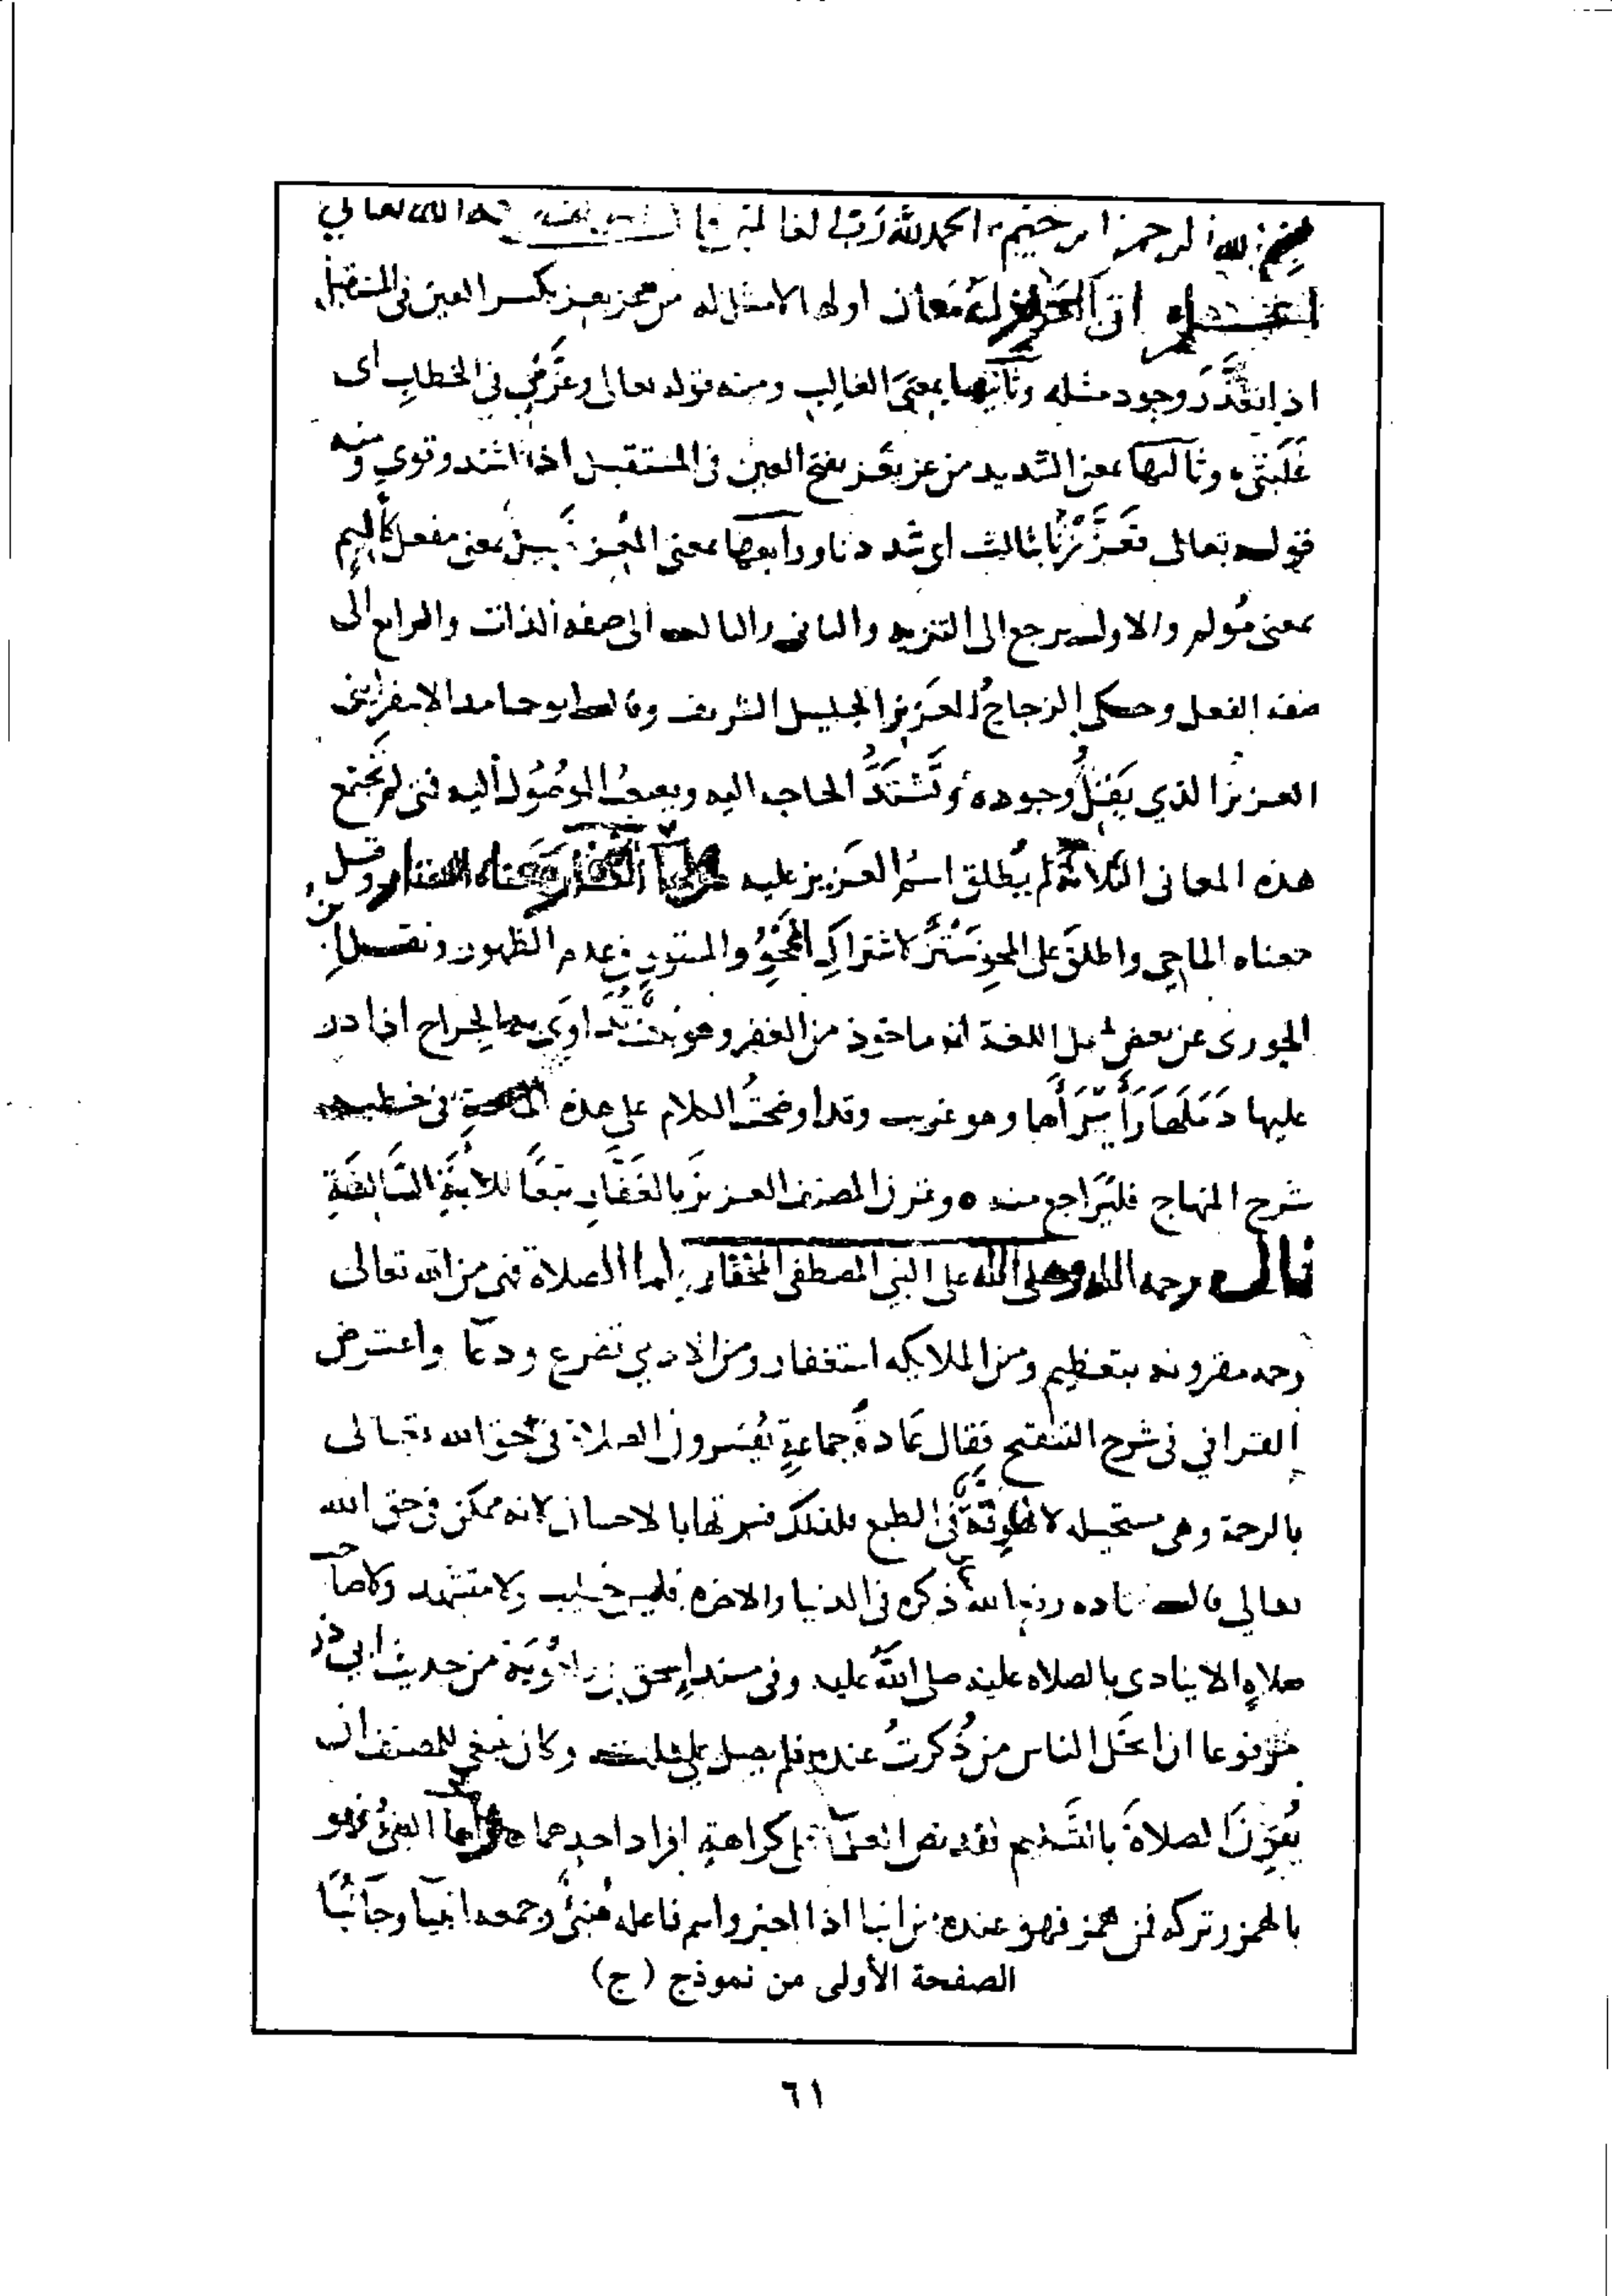 بسم الله الرحمن الرحيم الحمد لله رب العالمين الله تعالى
ان العزيز له معان اولها لا مثل له من عز يعز بكسر العين في المستقبل
اذا تعذر وجود مثله وثانيها بمعنى الغالب ومنه قوله تعالى وعزني في الخطاب اى
غلبني وثالثها بمعنى الشديد من عز يعز بفتح العين في المستقبل اذا اشتد وقوي ومنه
قوله تعالى فعززنا بثالث اى شددنا ورابعها بمعنى المعز بمعنى مفعل كأليم
بمعنى مؤلم والاول يرجع الى التنزيه والثاني والثالث الى صفة الذات والرابع الى
صفة الفعل وحكى الزجاج العزيز الجليل الشريف وقال ابو حامد الاسفرايني
العزيز الذي يقل وجوده وتشتد الحاجه اليه ويصعب الوصول اليه فمن لم تجتمع
هذه المعاني الثلاثة لم يطلق اسم العزيز عليه الستار وقيل
معناه الماحي واطلق على المحو ستر لاشتراك الممحو والمستور في عدم الظهور ونقل ابن
الجوزى عن بعض اهل اللغة انه ماخوذ من الغفر وهو نبت تداوى به الجراح اذا در
عليها دملها وابراها وهو غريب وقد اوضحت الكلام على هذه في خطبه
شرح المنهاج فليراجع منه ٥ وقرن المصنف العزيز بالغفار تبعا للآية السابقة
قال رحمه الله وصلى الله على النبي المصطفى المختار اما الصلاة فهي من الله تعالى
رحمه مقرونه بتعظيم ومن الملايكه استغفار ومن الادمي تضرع ودعا واعترض
القرافي في شرح التنقيح فقال عادة جماعة يفسرون الصلاة في حق الله تعالى
بالرحمة وهى مستحيله لانها رقة في الطبع فلذلك فسرتها بالاحسان لانه ممكن في حق الله
تعالي قال قتاده رفع الله ذكره في الدنيا والاخره فليس خطيب ولا متشهد ولا صاحب
صلاه الا ينادى بالصلاه عليه صلى الله عليه وفى مسند اسحق بن راهويه من حديث ابي ذر
مرفوعا ان ابخل الناس من ذكرت عنده فلم يصل علي وكان ينبغي للمصنف ان
يقرن الصلاة بالتسليم فقد نص العلما على كراهة افراد احدهما واما النبي فهو
بالهمز وتركه فمن همز فهو عنده من انبا اذا اخبر واسم فاعله منبئ وجمعه انبيا وجا نبا
الصفحة الأولى من نموذج (ج)
٦١